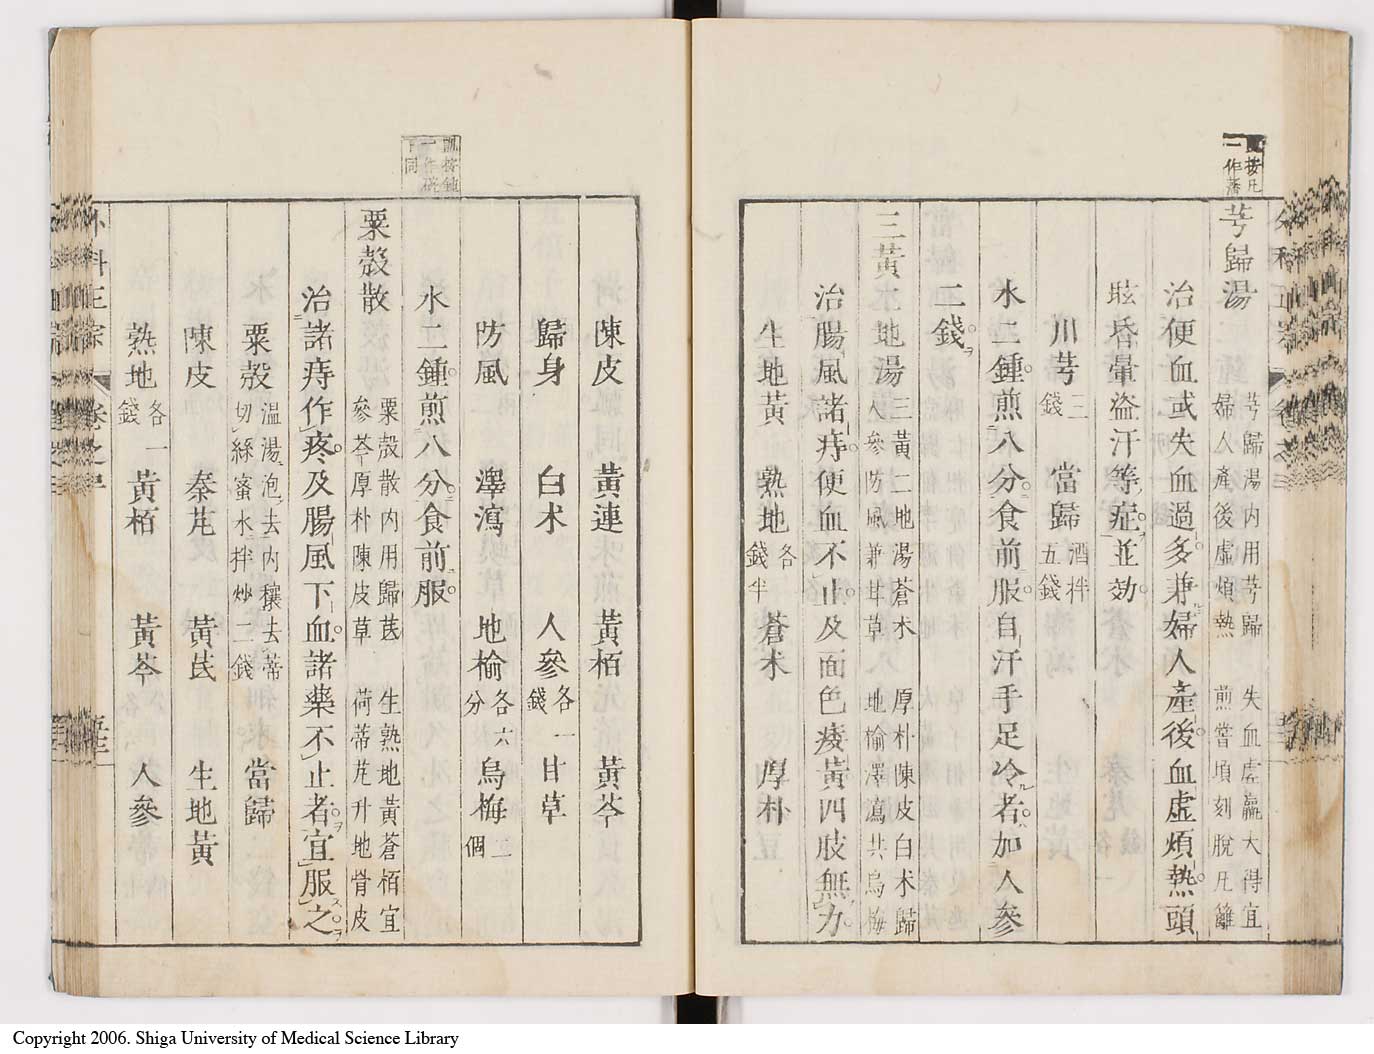 按凡
一作
芎歸湯 芎歸湯內用芎歸 失血虛羸大得宜
婦人產後虛煩熱 煎嘗頃刻脫凡籬
治便血或失血過多兼婦人產後血虛煩熱頭
眩昏暈盜汗等症並効
川芎 二錢 當歸 酒拌五錢
水二鍾煎八分食前服自汗手足冷者加人參
二錢
三黃二地湯 三黃二地湯蒼朮 厚朴陳皮白朮歸
人參防風兼甘草 地榆澤瀉共烏梅
治腸風諸痔便血不止及面色痿黃四肢無力
生地黃 熟地 各錢半 蒼朮 厚朴
凱按鍾
一作
下同
陳皮 黃連 黃栢 黃芩
歸身 白朮 人參 各一錢 甘草
防風 澤瀉 地榆 各六分 烏梅 二個
水二鍾煎八分食前服
粟殼散 粟殼散內用歸芪 生熟地黃蒼栢宜
參芩厚朴陳皮草 荷蒂芃升地骨皮
治諸痔作疼及腸風下血諸藥不止者宜服之
粟殼 溫湯泡去內穰去蒂
切絲蜜水拌炒二錢 當歸
陳皮 秦芃 黃芪 生地黃
熟地 各一錢 黃栢 黃芩 人參
外科正宗 卷之三